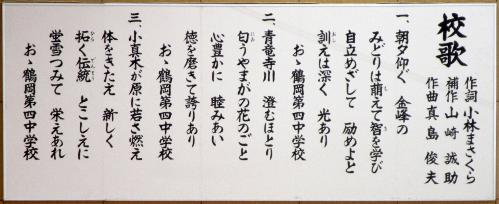 校歌
作詞 小林まさくら
補作 山﨑誠助
作曲 真島俊夫
一、朝夕仰ぐ 金峰の
みどりは萌えて智を学び
自立めざして 励めよと
訓えは深く 光あり
おゝ鶴岡第四中学校
二、青竜寺川 澄むほとり
匂うやまがの花のごと
心豊かに 睦みあい
徳を磨きて誇りあり
おゝ鶴岡第四中学校
三、小真木が原に若さ燃え
体をきたえ 新しく
拓く伝統 とこしえに
蛍雪つみて 栄えあれ
おゝ鶴岡第四中学校